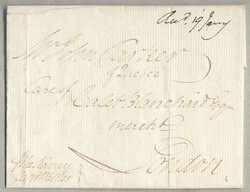 Recd. 19 Jany
Mr John Cartier
Quebec
Care of
Caleb Blanchard Esqr
mercht
London